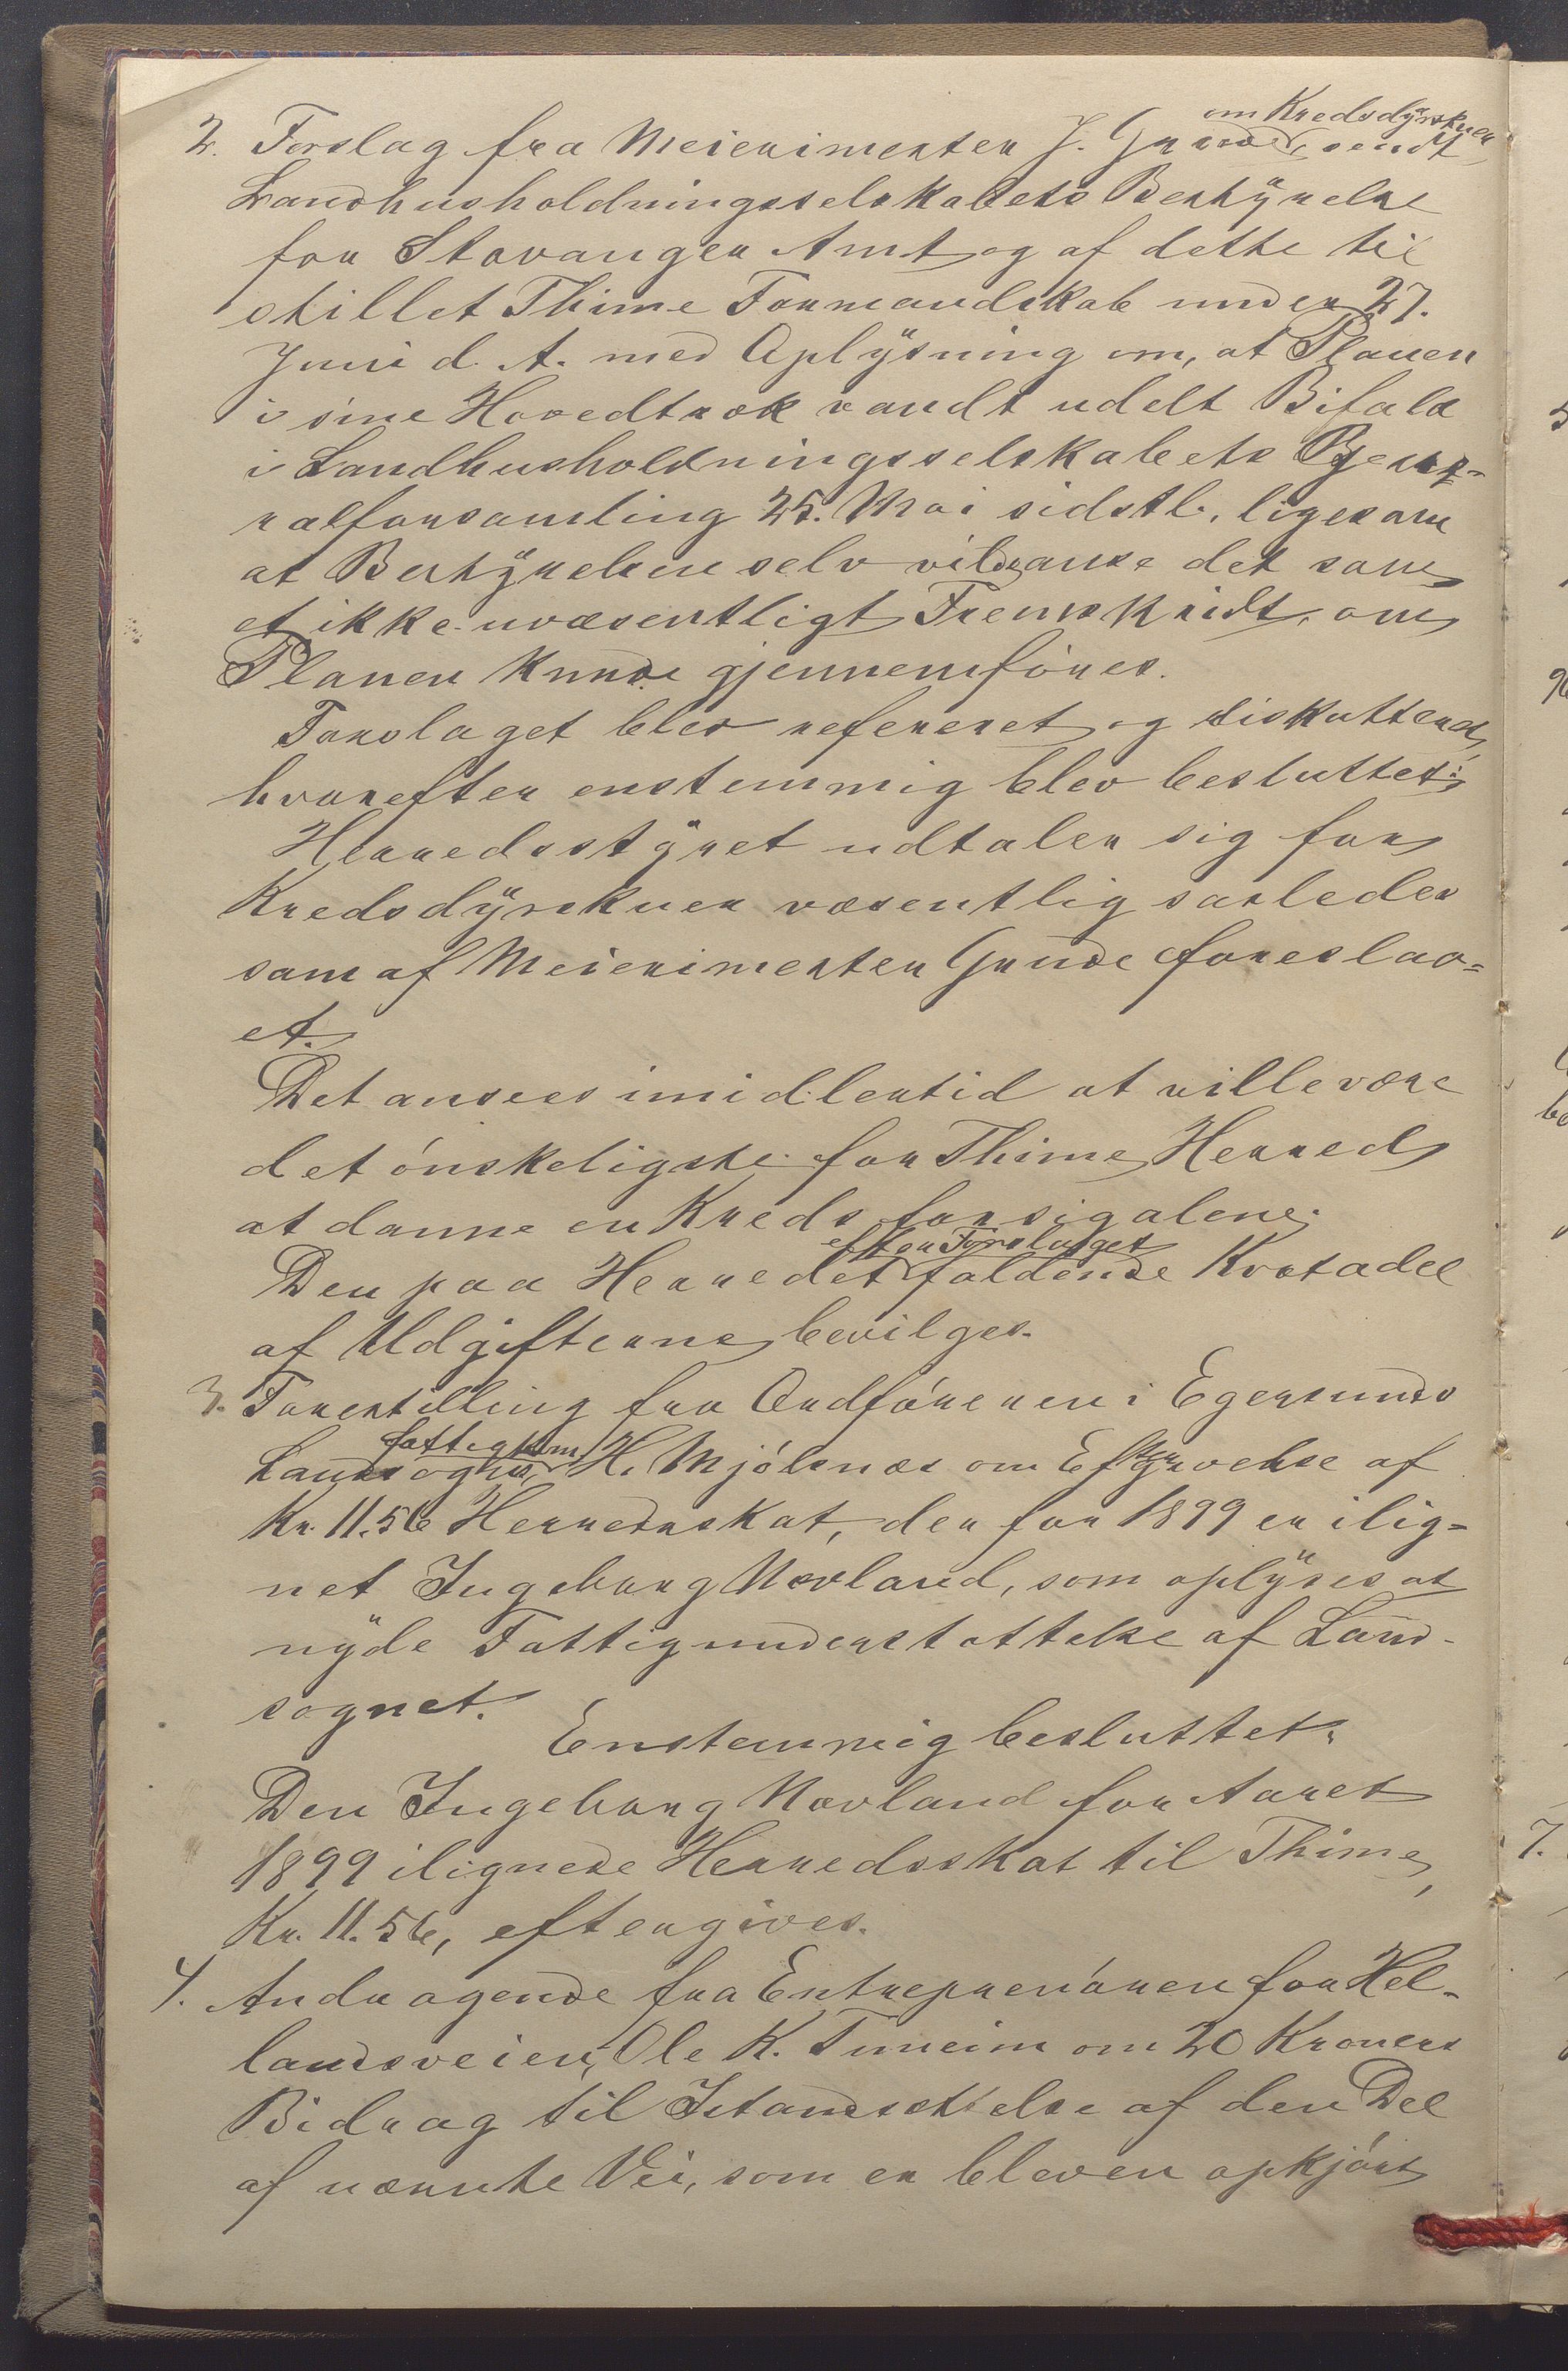 om Kredsdÿrskuer,
2. Forslag fra Meierimester J. Grude, sendt
Landhusholdningsselskabets Bestÿrelse
for Stavanger Amt og af dette til
stillet Thime Formandskab under 27.
Juni d. A. med Oplÿsning om, at Planen
i sine Hovedtræk vandt udelt Bifald
i Landhusholdningsselskabets Gene-
ralforsamling 25. Mai sidstl., ligesom
at Bestÿrelsen selv vilde anse det som
et ikke uvæsentligt Fremskridt, om
Planen kunde gjennemføres.
Forslaget blev refereret og diskutteret,
hvorefter enstemmig blev besluttet:
Herredsstÿret udtaler sig for
Kredsdÿrskuer væsentlig saaledes
som af Meierimester Grude foreslaa-
et.
Det ansees imidlertid at ville være
det ónskeligste for Thime Herred
at danne en Kreds for sig alene.
efter Forslaget
Den paa Herredet faldende Kvotadel
af Udgifterne bevilges.
3. Forestilling fra Ordfóreren i Egersunds
fattigkom.
Landsogns, H. Mjólsnæs om Eftergivelse af
Kr. 11.56 Herredsskat, der for 1899 er ilig-
net Ingeborg Nærland, som oplÿses at
nÿde Fattigunderstøttelse af Land-
sognet.
Enstemmig besluttet:
Den Ingeborg Nærland for Aaret
1899 ilignede Herredsskat til Thime,
Kr. 11.56, eftergives.
4. Andragende fra Entreprenóren for Hel-
landsveien, Ole K. Tuneim om 20 Kroners
Bidrag til Istandsættelse af den Del
af nævnte Vei, som er bleven opkjórt